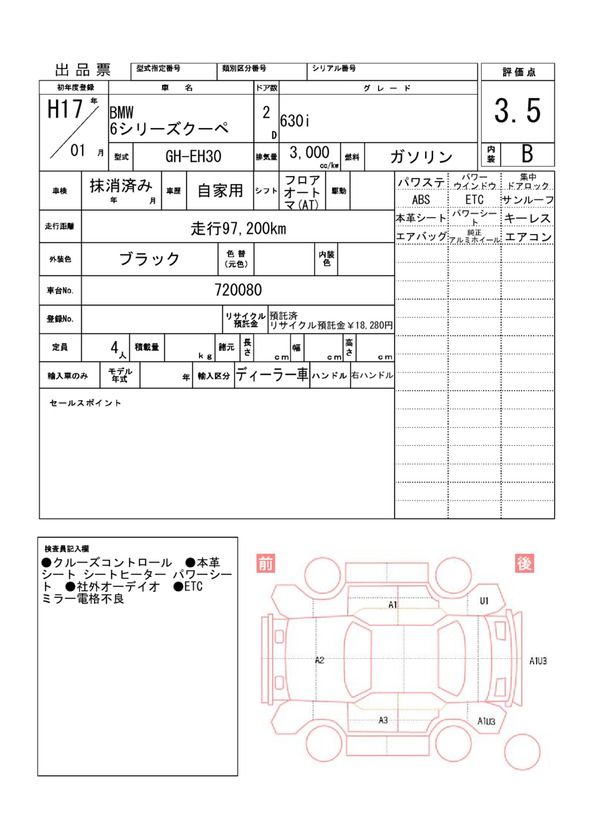 出品票 型式指定番号 類別区分番号 シリアル番号
評価点
初年度登録 車名 ドア数 グレード
H17年 BMW 2 3.5
6シリーズクーペ D 630i
01月 型式 GH-EH30 排気量 3,000 燃料 ガソリン 内装 B
cc/kw
車検 抹消済み 車歴 自家用 シフト フロアオートマ(AT) 駆動
年 月
走行距離 走行97,200km
外装色 ブラック 色替(元色) 内装色
車台No. 720080
登録No. リサイクル預託金 預託済
リサイクル預託金¥18,280円
定員 4人 積載量 kg 諸元 長さ cm 幅 cm 高さ cm
輸入車のみ モデル年式 年 輸入区分 ディーラー車 ハンドル 右ハンドル
セールスポイント
パワステ パワーウインドウ 集中ドアロック
ABS ETC サンルーフ
本革シート パワーシート キーレス
エアバッグ 純正アルミホイール エアコン
検査員記入欄
●クルーズコントロール ●本革
シート シートヒーター パワーシー
ト ●社外オーデイオ ●ETC
ミラー電格不良
前 後
A1 U1
A2 A1U3
A3 A1U3